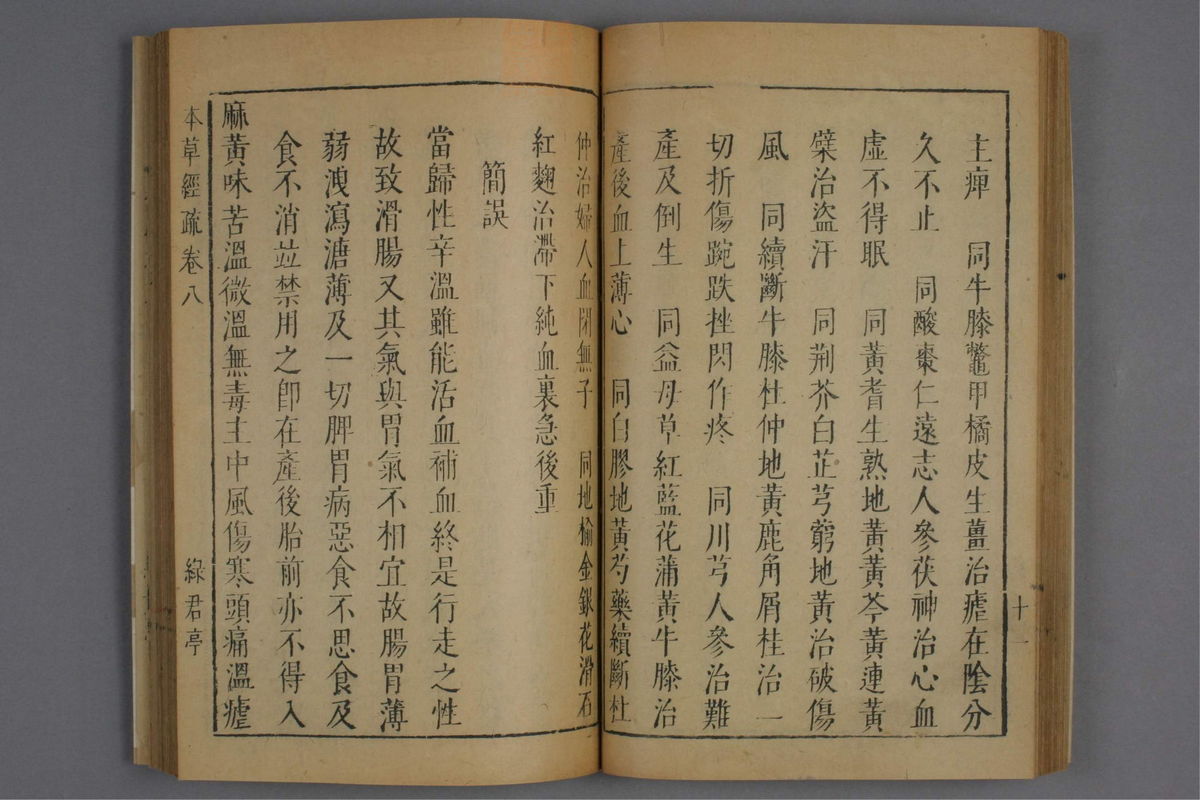 主痺　同牛膝鼈甲橘皮生薑治瘧在陰分
久不止　同酸棗仁遠志人參茯神治心血
虛不得眠　同黃耆生熟地黃黃芩黃連黃
檗治盜汗　同荆芥白芷芎藭地黃治破傷
風　同續斷牛膝杜仲地黃鹿角屑桂治一
切折傷踠跌挫閃作疼　同川芎人參治難
產及倒生　同益母草紅藍花蒲黃牛膝治
產後血上薄心　同白膠地黃芍藥續斷杜
十一
仲治婦人血閉無子　同地榆金銀花滑石
紅麴治滯下純血裏急後重
簡誤
當歸性辛溫雖能活血補血終是行走之性
故致滑腸又其氣與胃氣不相宜故腸胃薄
弱洩瀉溏薄及一切脾胃病惡食不思食及
食不消竝禁用之卽在產後胎前亦不得入
麻黃味苦溫微溫無毒主中風傷寒頭痛溫瘧
本草經疏卷八　綠君亭